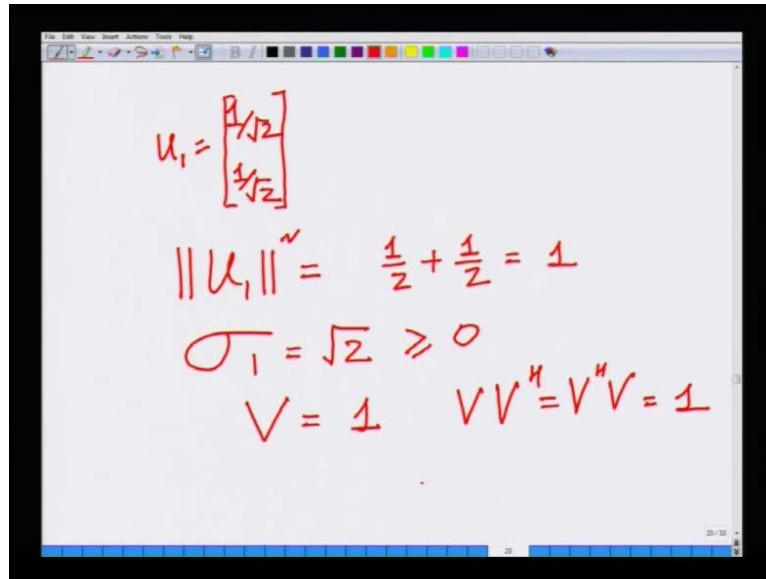 File Edit View Insert Actions Tools Help
B I
u₁ = [1/√2
1/√2]
||u₁||² = 1/2 + 1/2 = 1
σ₁ = √2 ≥ 0
V = 1 VVᴴ = VᴴV = 1
23/33
23